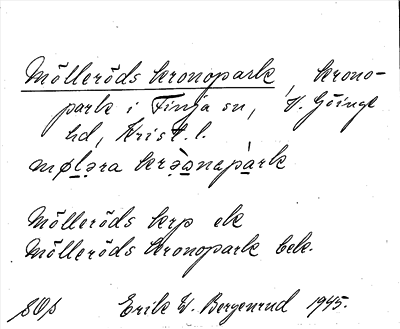 Mölleröds kronopark, krono-
park i Finja sn, V. Göinge
hd, Krist. l.
mølǝra krǝ̀ɷnapàrk
Mölleröds krp ek
Mölleröds kronopark bek.
SOS Erik W. Bergenrud 1945.